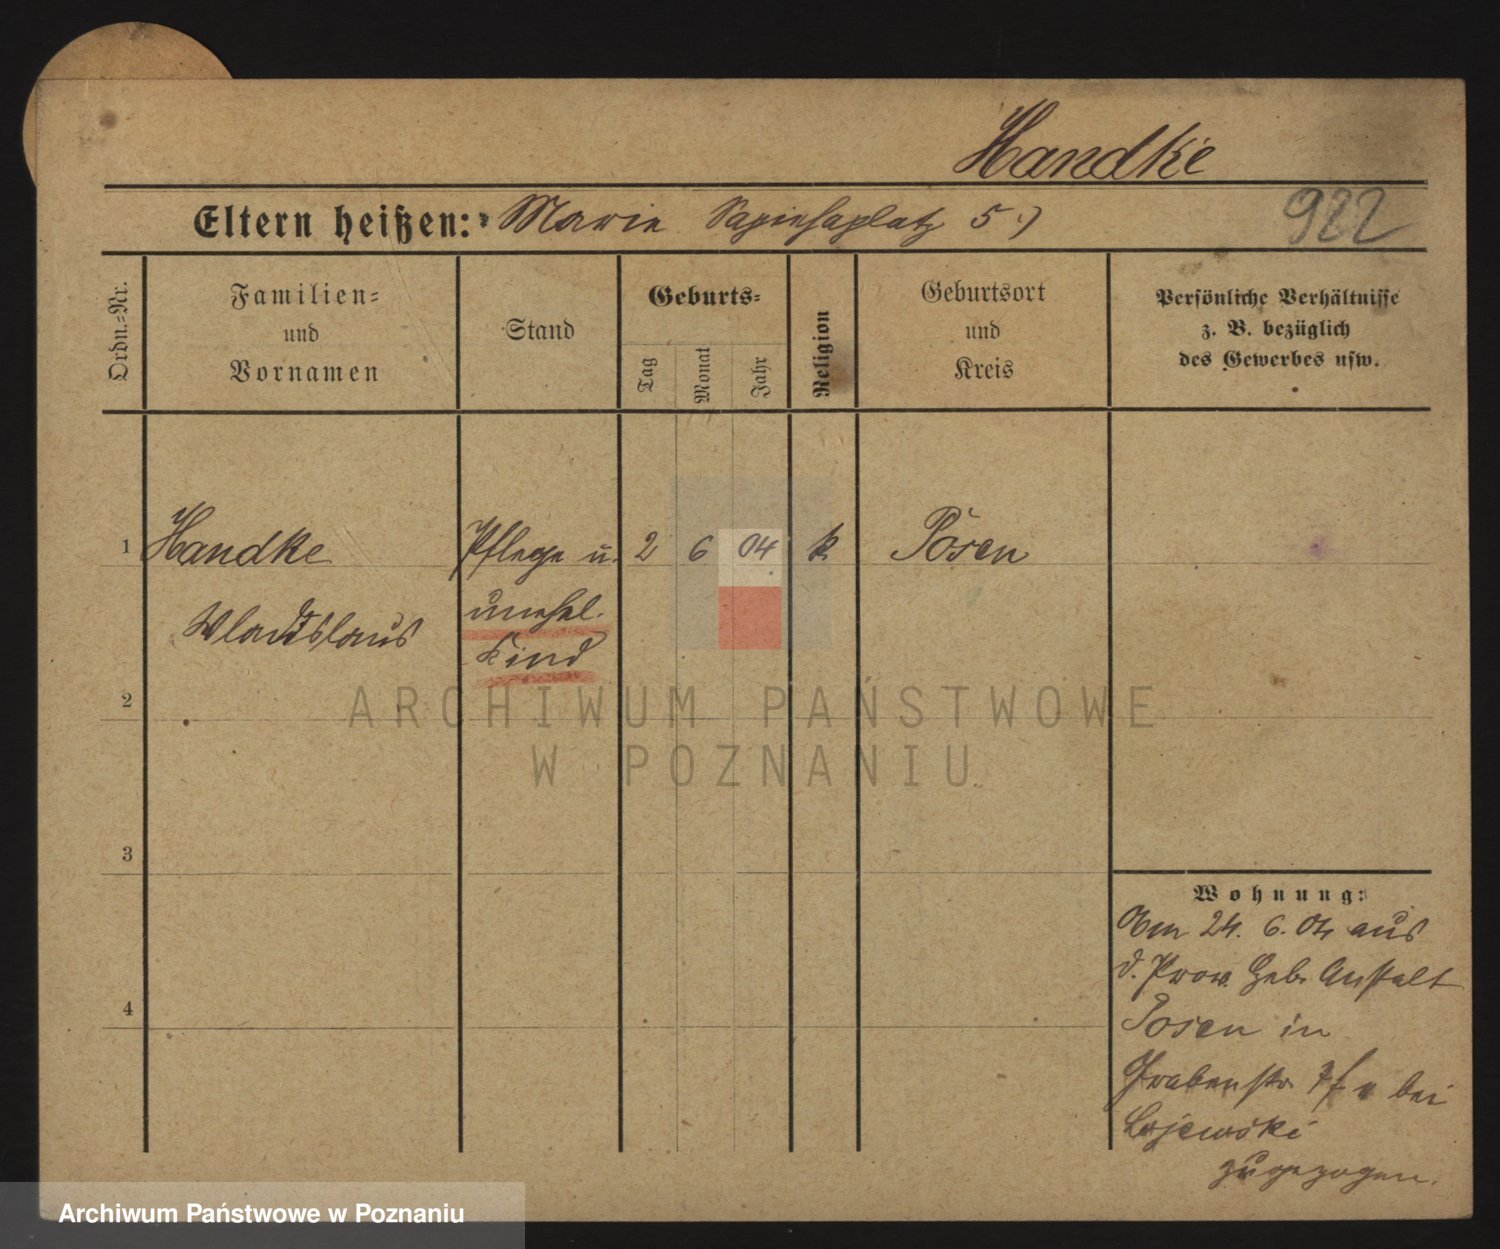 Handke
Eltern heißen: Marie Sapiehaplatz 5.)
922
Ordn.=Nr.
Familien=
und
Vornamen
Stand
Geburts=
Tag
Monat
Jahr
Religion
Geburtsort
und
Kreis
Persönliche Verhältnisse
z. B. bezüglich
des Gewerbes usw.
1 Handke Pflege u. 2 6 04 k. Posen
Wladislaus unehel.
Kind
2
3
4
Wohnung:
Am 24. 6. 04 aus
d. Prov. Geb. Anstalt
Posen in
Grabenstr. bei
Lajewski
zugezogen.
ARCHIWUM PAŃSTWOWE
W POZNANIU
Archiwum Państwowe w Poznaniu